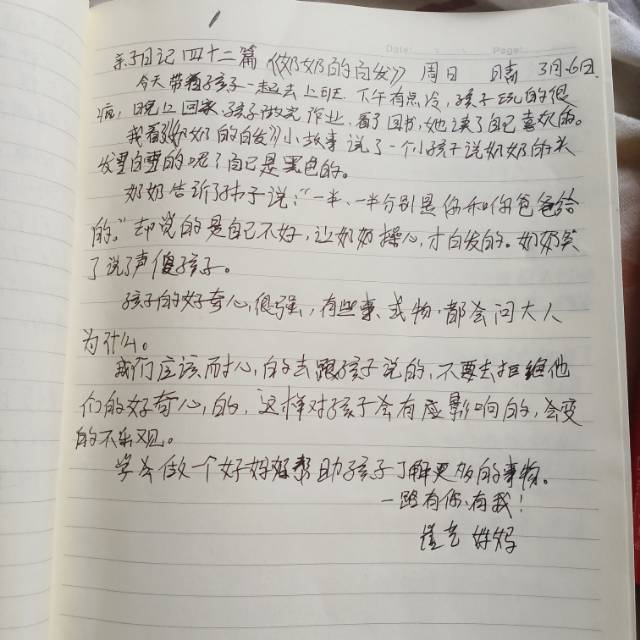 Date: Page:
亲子日记四十二篇《奶奶的白发》 周日 晴 3月6日
今天带着孩子一起去上班 下午有点冷,孩子玩的很
晚上回家,孩子做完作业,看了图书,她读了自己喜欢的。
我看《奶奶的白发》小故事 说了一个小孩子说奶奶的头
发里白的呢?自己是黑色的。
奶奶告诉了孙子说:“一半、一半分别是你和你爸爸给
的。”却说的是自己不好,让奶奶操心,才白发的。奶奶笑
了说了声傻孩子。
孩子的好奇心,很强,有些事、或物,都会问大人
为什么。
我们应该耐心,的去跟孩子说的,不要去拒绝他
们的好奇心,的,这样对孩子会有应影响的,会变
的不乐观。
学会做一个好妈妈帮助孩子了解更多的事物。
一路有你、有我!
妈妈